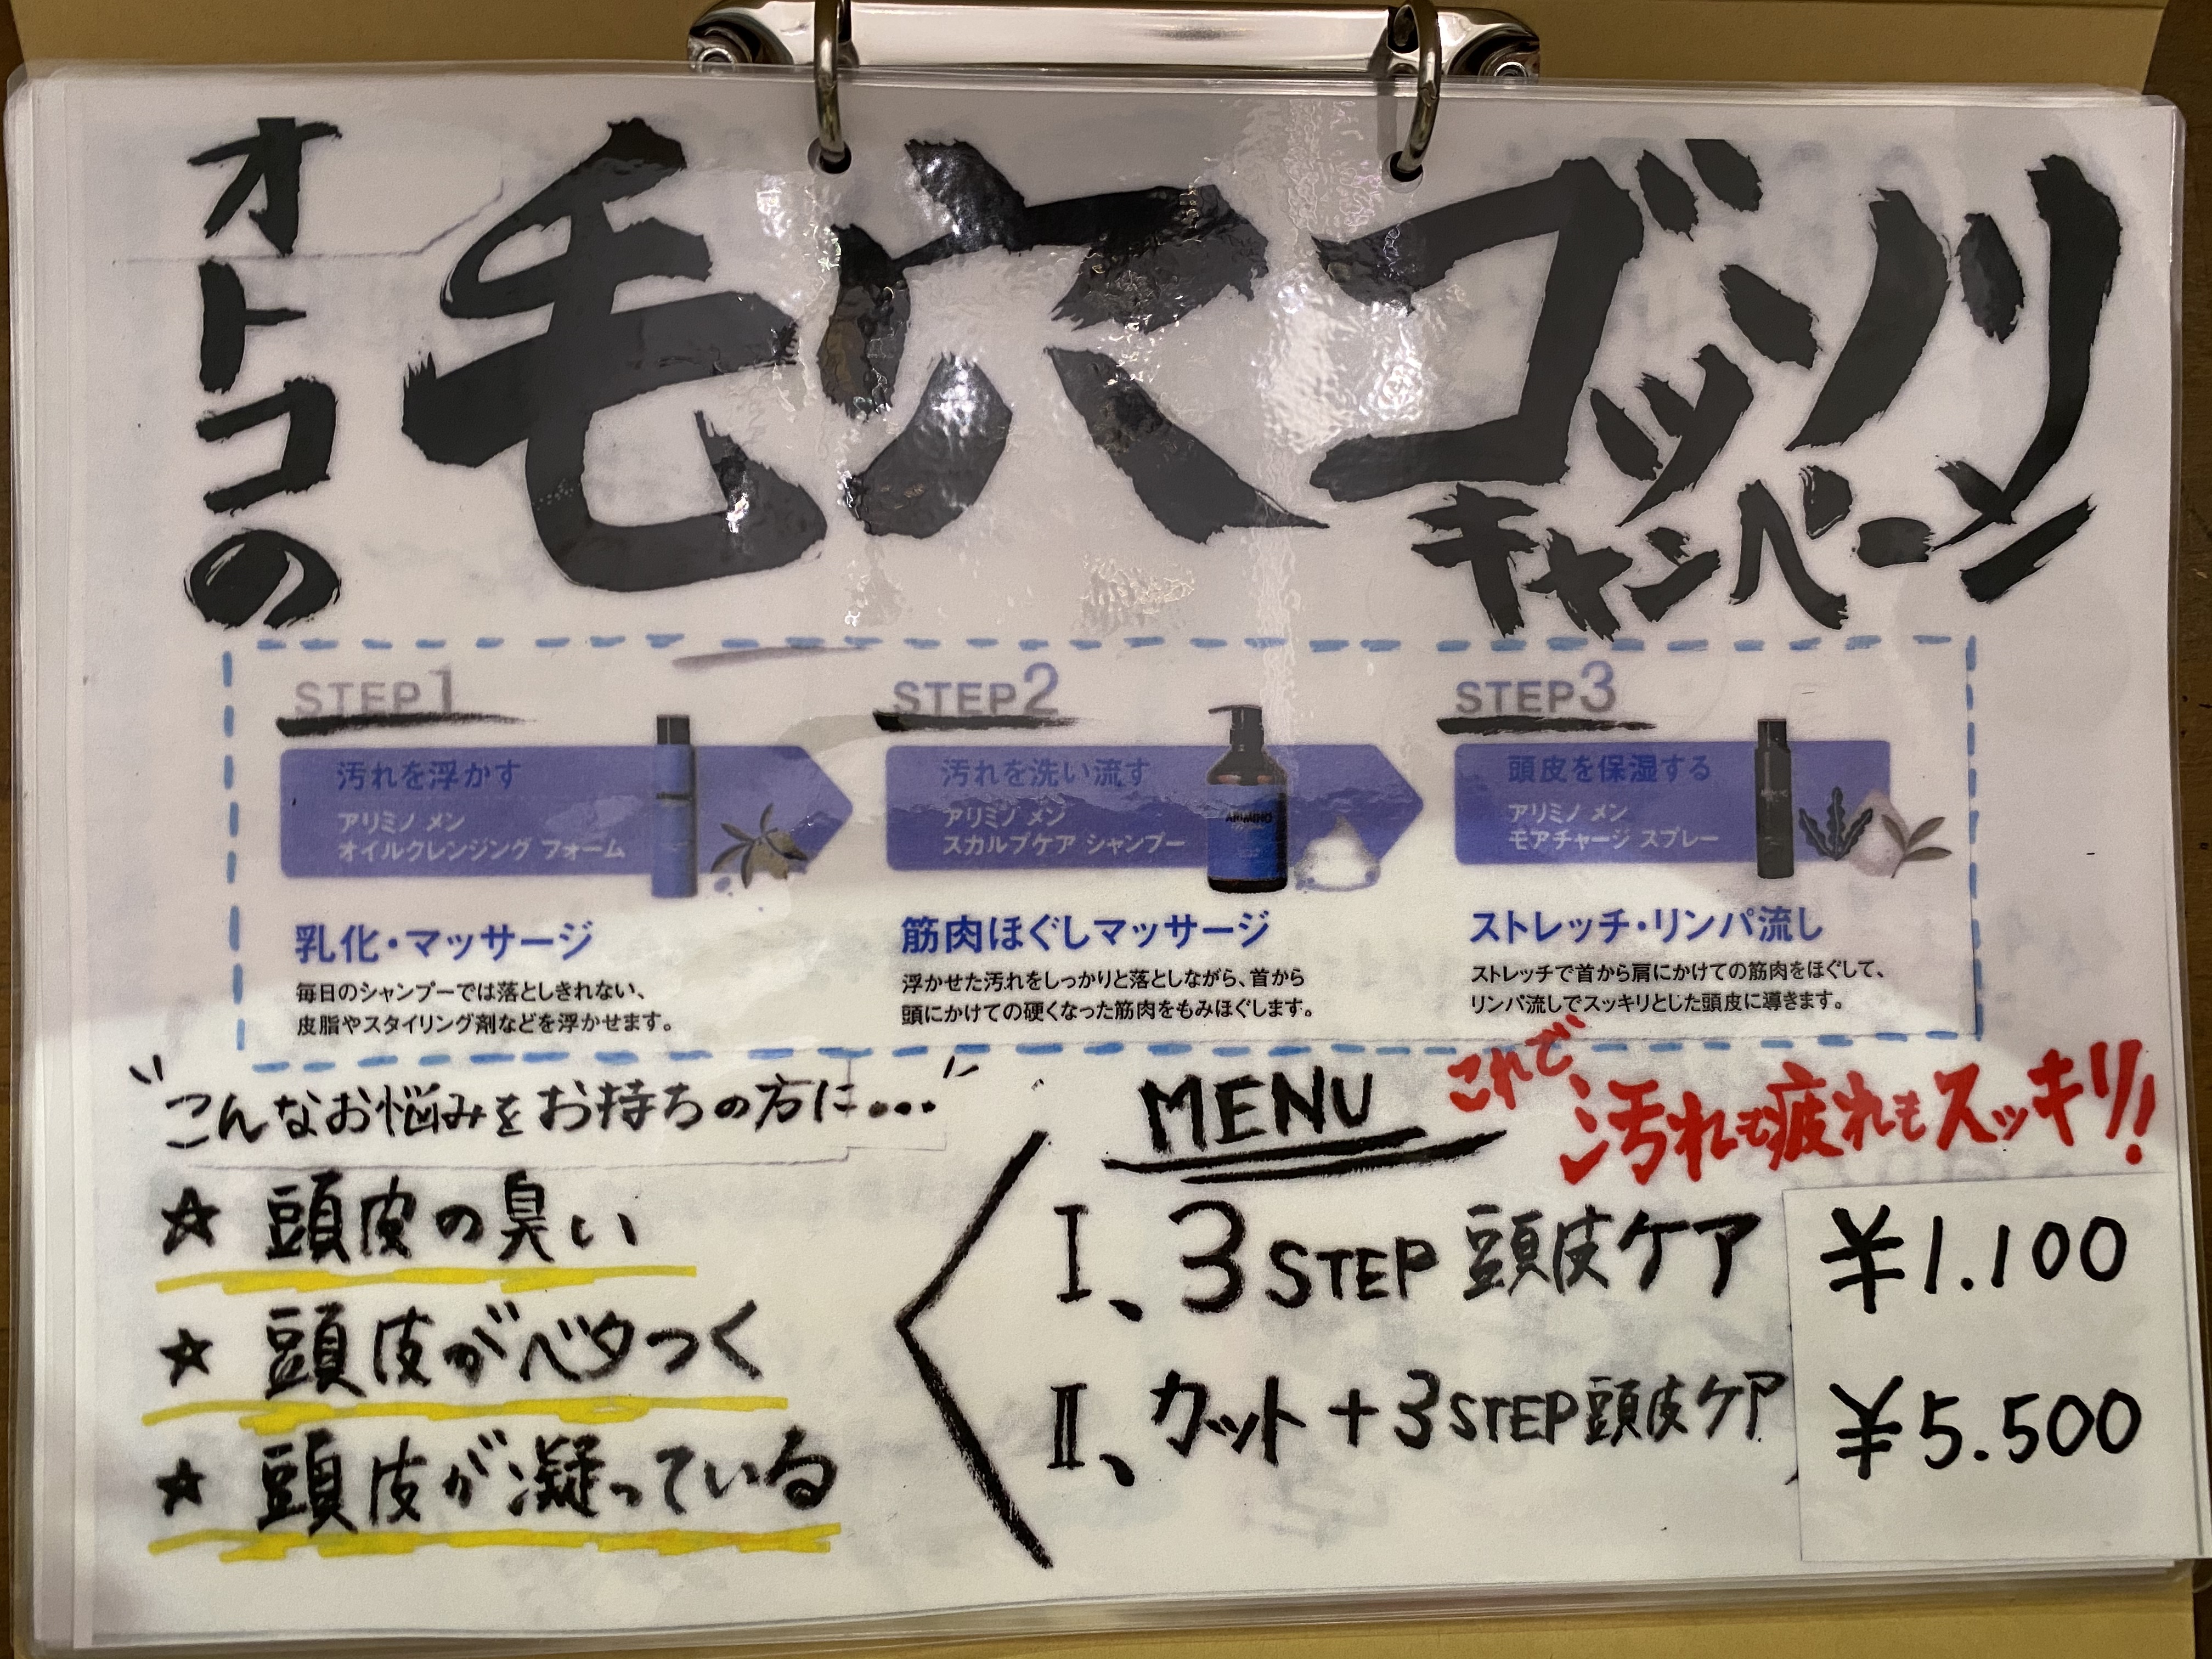 オトコの
毛穴ゴッソリ
キャンペーン
STEP1
汚れを浮かす
アリミノ メン
オイルクレンジング フォーム
乳化・マッサージ
毎日のシャンプーでは落としきれない、
皮脂やスタイリング剤などを浮かせます。
STEP2
汚れを洗い流す
アリミノ メン
スカルプケア シャンプー
ARIMINO
筋肉ほぐしマッサージ
浮かせた汚れをしっかりと落としながら、首から
頭にかけての硬くなった筋肉をもみほぐします。
STEP3
頭皮を保湿する
アリミノ メン
モアチャージ スプレー
ストレッチ・リンパ流し
ストレッチで首から肩にかけての筋肉をほぐして、
リンパ流しでスッキリとした頭皮に導きます。
"こんなお悩みをお持ちの方に..."
☆ 頭皮の臭い
☆ 頭皮がベタつく
☆ 頭皮が凝っている
MENU
これで
汚れも疲れもスッキリ!!
I、3STEP 頭皮ケア ¥1.100
II、カット+3STEP頭皮ケア ¥5.500